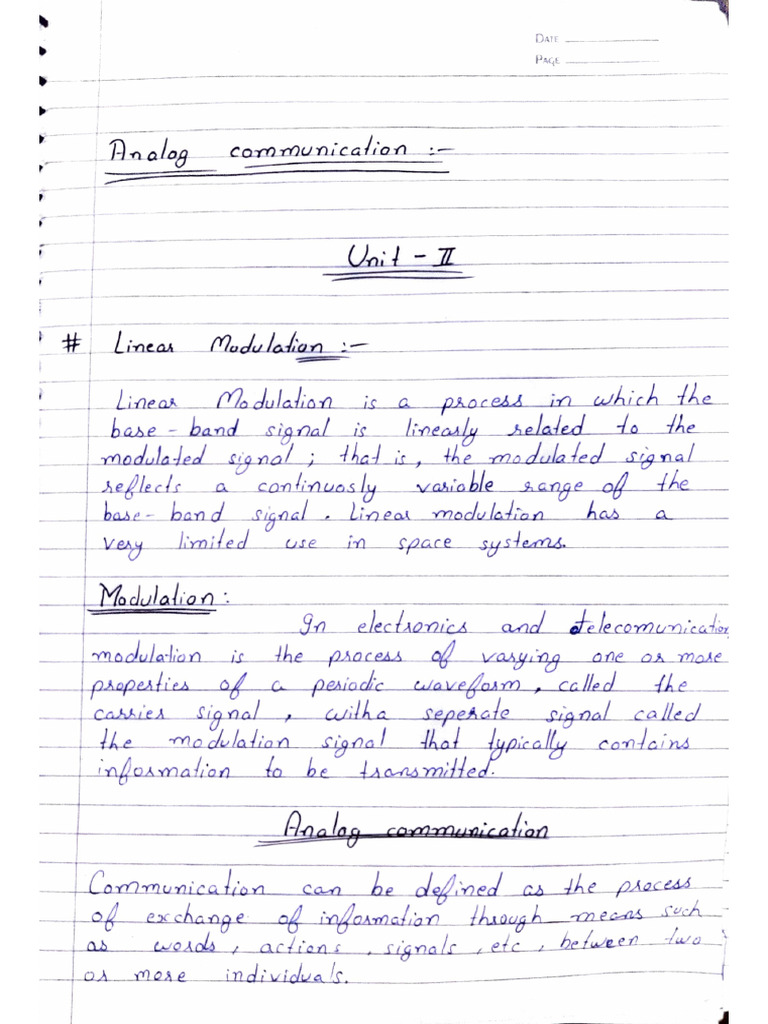 DATE
PAGE
Analog communication :-
Unit - II
# Linear Modulation :-
Linear Modulation is a process in which the
base-band signal is linearly related to the
modulated signal; that is, the modulated signal
reflects a continuosly variable range of the
base-band signal. Linear modulation has a
very limited use in space systems.
Modulation:
In electronics and telecomunication
modulation is the process of varying one or more
properties of a periodic waveform, called the
carrier signal, witha seperate signal called
the modulation signal that typically contains
information to be transmitted.
Analog communication
Communication can be defined as the process
of exchange of information through means such
as words, actions, signals, etc, between two
or more individuals.